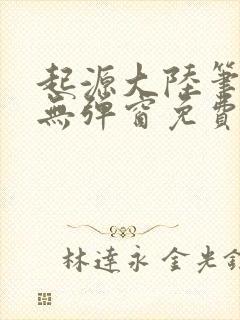 起源大陸筆
無彈窗免費
林達永 金光